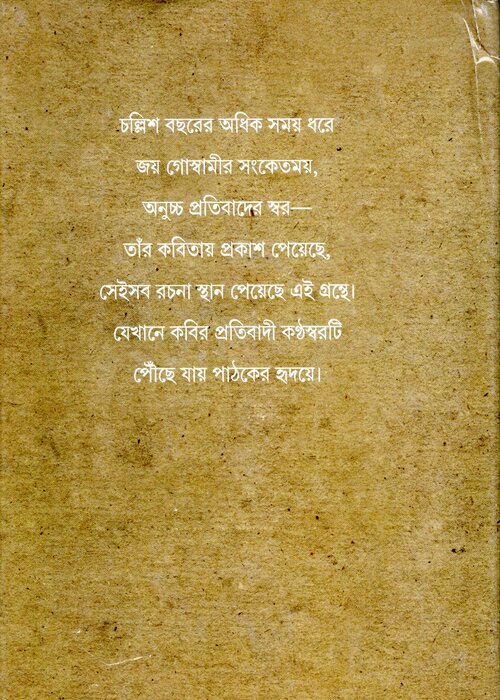 চল্লিশ বছরের অধিক সময় ধরে
জয় গোস্বামীর সংকেতময়,
অনুচ্চ প্রতিবাদের স্বর—
তাঁর কবিতায় প্রকাশ পেয়েছে,
সেইসব রচনা স্থান পেয়েছে এই গ্রন্থে।
যেখানে কবির প্রতিবাদী কণ্ঠস্বরটি
পৌঁছে যায় পাঠকের হৃদয়ে।